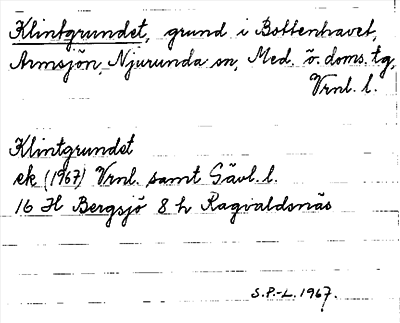 Klintgrundet, grund i Bottenhavet,
Armsjön, Njurunda sn, Med. ö. doms. tg,
Vrnl. l.
Klintgrundet
ek (1967) Vrnl. samt Gävl. l.
16 H Bergsjö 8 h Ragvaldsnäs
S.P.-L. 1967.